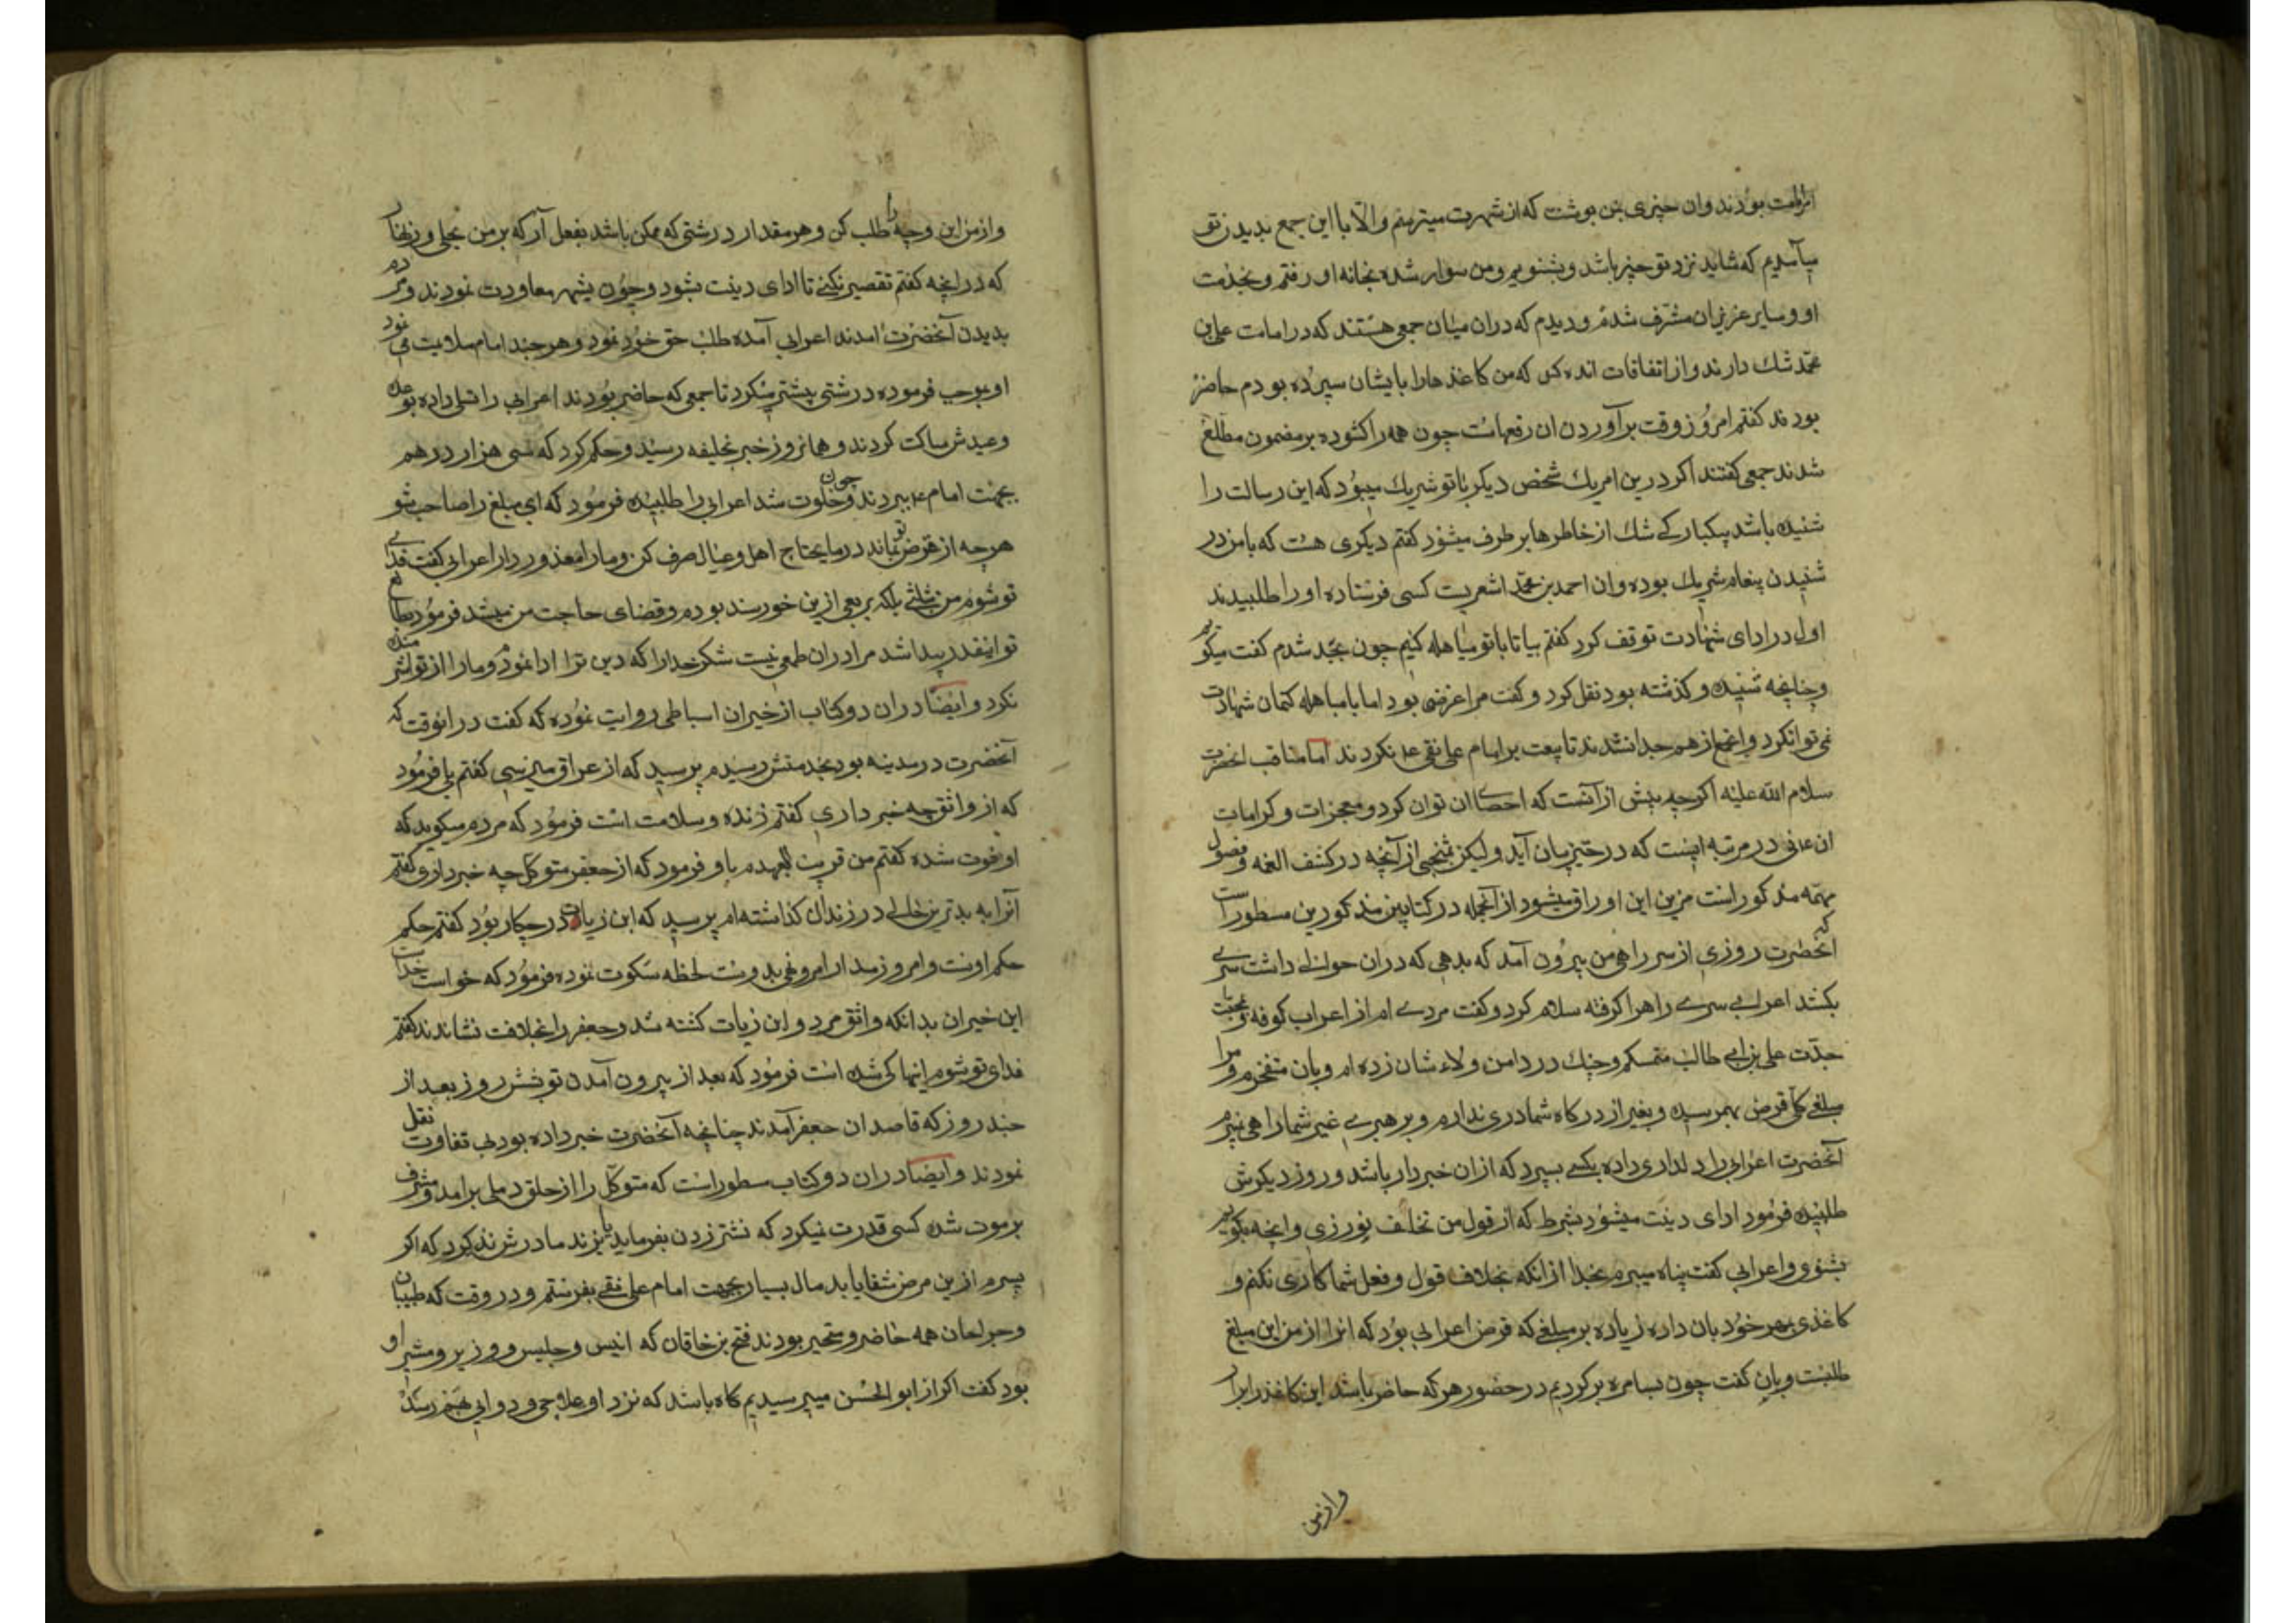 بودند وان خبری بمن نوشت که از شهرت میترسم والا با این جمع بدیدن تو
میآمدیم که شاید نزد تو خبر باشد و بشنویم ومن سوار شده بخانه او رفتم و بخدمت
او وسایر عزیزان مشرف شدم ودیدم که دران میان جمعی هستند که در امامت علی بن
محمد شک دارند واز اتفاقات انده کس که من کاغذ هارا بایشان سپرده بودم حاضر
بودند کفتم امروز وقت برآوردن ان رقعهاست چون همه را کشوده بر مضمون مطلع
شدند جمعی کفتند اکر درین امر یک شخص دیکر با تو شریک میبود که این رسالت را
شنیده باشد بیکبارکی شک از خاطرها بر طرف میشود کفتم دیکری هست که با من در
شنیدن پیغام شریک بوده وان احمد بن محمد اشعریست کسی فرستاده اورا طلبیدند
اول در ادای شهادت توقف کرد کفتم بیا تا با تو مباهله کنیم چون بجد شدم کفت میکویم
وچنانچه شنیده و کذشته بود نقل کرد و کفت مرا غرضی بود اما با مباهله کتمان شهادت
نمی توانکرد وانجمع از هم جدا نشدند تا بیعت بر امام علی نقی ع نکردند اما مناقب انحضرت
سلام الله علیه اکرچه بیش از آنست که احصای ان توان کرد و معجزات و کرامات
ان عالی در مرتبه ایست که در حیز بیان آید ولیکن منتخبی از آنچه در کشف الغمه و فصول
مهمه مذکور است مزین این اوراق میشود از آنجمله در کتابین مذکورین مسطور است
که انحضرت روزی از سر راهی من بیرون آمد که بدهی که دران حوالی داشت سری
بکشد اعرابی سر راهرا کرفته سلام کرد و کفت مردی ام از اعراب کوفه و بمحبت
جدت علی بن ابی طالب متمسکم وچنک در دامن ولاء شان زده ام وبان مفتخرم و مرا
مبلغی کلی قرض بهمرسیده و بغیر از درکاه شما دری ندارم و بر هبری غیر شما راهی نمیبرم
آنحضرت اعرابی را دلداری داده بکسی سپرد که ازان خبردار باشد و روز دیکرش
طلبیده فرمود ادای دینت میشود بشرط که از قول من تخلف نورزی وانچه بکویم
بشنوی واعرابی کفت پناه میبرم بخدا از انکه بخلاف قول و فعل شما کاری نکنم و
کاغذی بمهر خود بان داده زیاده بر مبلغی که قرض اعرابی بود که انرا از من این مبلغ
طلبست وبان کفت چون بسامره بر کردیم در حضور هر که حاضر باشد این کاغذ را برار
وازمن
وازمن این وجه را طلب کن و هر مقدار درشتی که ممکن باشد بفعل آر که بر من بحلی و زنهار
که در انچه کفتم تقصیر نکنی تا ادای دینت بشود و چون بشهر معاودت نمودند ومردم
بدیدن آنحضرت امدند اعرابی آمده طلب حق خود نمود و هر چند امام ملایمت می نمود
او بموجب فرموده درشتی بیشتر میکرد تا جمعی که حاضر بودند اعرابی را تسلی داده بوعد
وعیدش ساکت کردند و همانروز خبر بخلیفه رسید و حکم کرد که سی هزار درهم
بجهت امام ع ببردند و چون خلوت شد اعرابی را طلبیده فرمود که ای مبلغ را صاحب شو
هرچه از قرض تو بماند در مایحتاج اهل و عیال صرف کن ومارا معذور دار اعرابی کفت فدای
تو شوم من بثلثی بلکه بربعی ازین خورسند بودم وقضای حاجت من میشد فرمود بطالع
تو اینقدر پیدا شد مرا دران طمعی نیست شکر خدارا که دین ترا ادا نمود و مارا از تو شرمنده
نکرد وایضا دران دو کتاب از خیران اسباطی روایت نموده که کفت در انوقت که
آنحضرت در مدینه بود بخدمتش رسیدم پرسید که از عراق میرسی کفتم بلی فرمود
که از واثق چه خبر داری کفتم زنده وسلامت است فرمود که مردم میکویند که
او فوت شده کفتم من قریب العهدم باو فرمود که از جعفر متوکل چه خبر داری کفتم
آنرا به بدترین حالی در زندان کذاشته ام پرسید که ابن زیات در چکار بود کفتم حکم
حکم اوست وامروز مدار امر وغی بدوست لحظه سکوت نموده فرمود که خواست خداست
این خیران بدانکه واثق مرد و ابن زیات کشته شد و جعفر را بخلافت نشاندند کفتم
فدای تو شوم اینها کی شده است فرمود که بعد از بیرون آمدن تو بشش روز بعد از
چند روز که قاصدان جعفر آمدند چنانچه آنحضرت خبر داده بود بی تفاوت نقل
نمودند وایضا دران دو کتاب مسطور است که متوکل را از حلق دملی برامد و مشرف
بر موت شد کسی قدرت نمیکرد که نشتر زدن بفرماید یا بزند مادرش نذر کرد که اکر
پسرم ازین مرض شفا یابد مال بسیار بجهت امام علی نقی بفرستم و در وقت که طبیبان
وجراحان همه حاضر و متحیر بودند فتح بن خاقان که انیس و جلیس ووزیر و مشیر او
بود کفت اکر از ابو الحسن میپرسیدیم کاه باشد که نزد او علاجی و دوایی بهم رسد